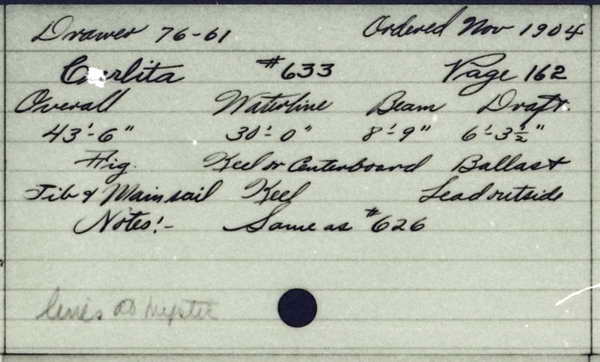 Drawer 76-61 Ordered Nov 1904
Carlita #633 Page 162
Overall Waterline Beam Draft
43'-6" 30'-0" 8'-9" 6'-3½"
Rig. Keel or Centerboard Ballast
Jib & Mainsail Keel Lead outside
Notes:- Same as #626
lines @ Mystic